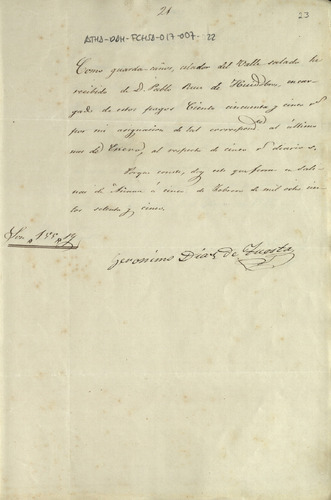 21
23
ATHA-DAH-FCHSA-017-007-22
Como guarda-caños, criador del Valle salado he
recibido de D. Pablo Ruiz de Huidobro, encar-
gado de estos pagos Ciento cincuenta y cinco rs
por mi asignacion de tal correspondte al último
mes de Enero, al respecto de cinco rs diarios.
Para que conste, doy este que firmo en Sali-
nas de Añana á cinco de Febrero de mil ocho cien-
tos sesenta y cinco.
Son " 155 rs
Jeronimo Diaz de Tuesta